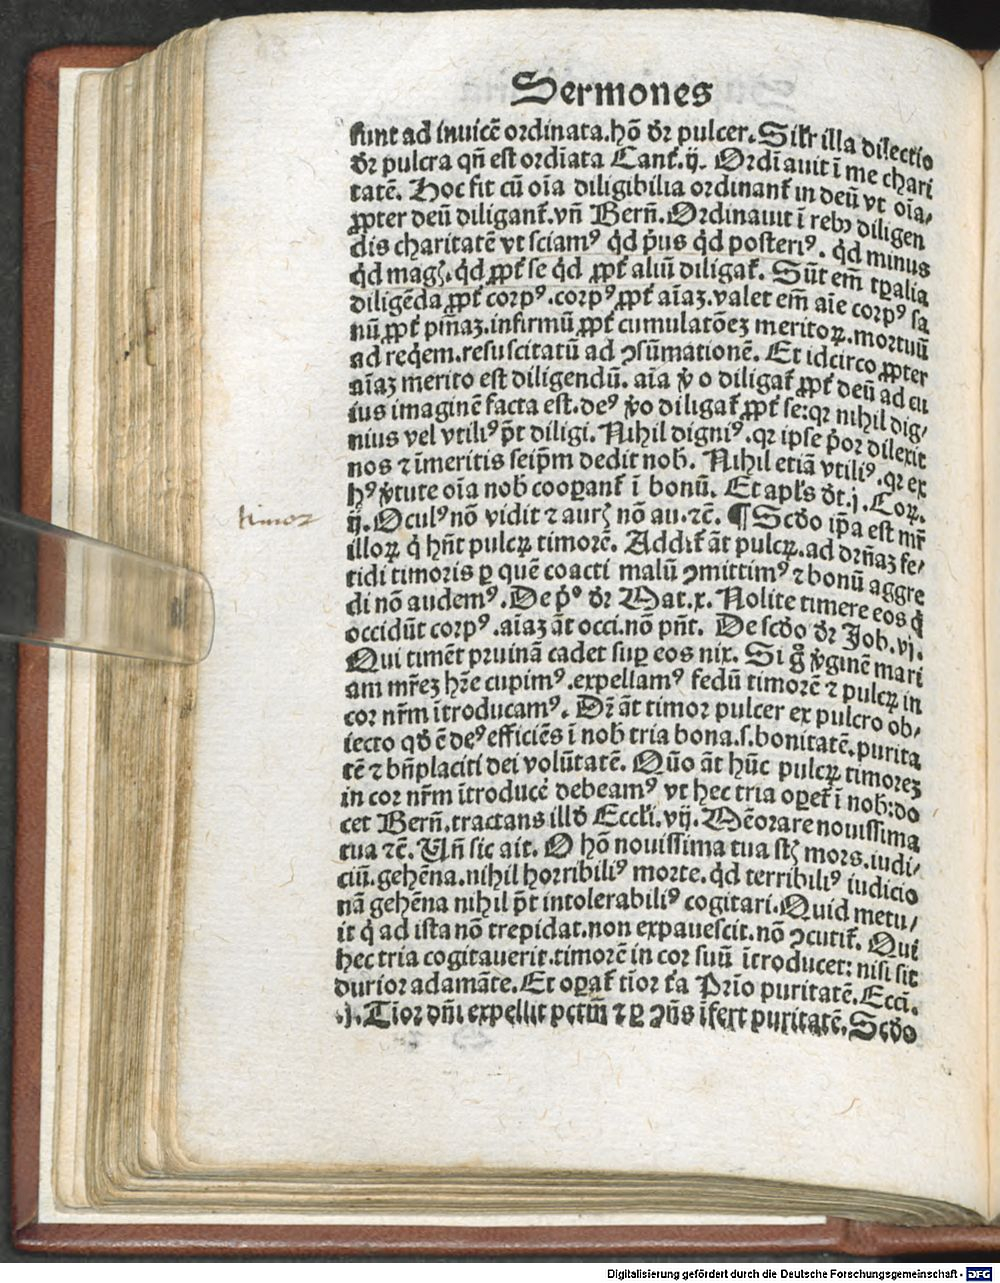 Sermones
sunt ad inuicē ordinata.hō dr̄ pulcer.Silr̄ illa dilectio
dr̄ pulcra qn̄ est ordīata Canꝉ.ij. Ordīauit ī me chari
tatē. Hoc fit cū oīa diligibilia ordinant̉ in deū vt oīa/
ꝓpter deū diligant̉.vn̄ Bern̄.Ordinauit ī rebꝰ diligen
dis charitatē vt sciamꝰ qd̄ p̄us qd̄ posteriꝰ. qd̄ minus
qd̄ magꝭ.qd̄ ꝓpt̉ se qd̄ ꝓpt̉ aliū diligat̉. Sūt em̄ tꝑalia
diligēda ꝓpt̉ corpꝰ.corpꝰ ꝓpt̉ aīaꝫ.valet em̄ aīe corpꝰ sa
nū ꝓpt̉ pm̄aꝫ.infirmū ꝓpt̉ cumulatōeꝫ meritoꝝ.mortuū
ad reqēm.resuscitatū ad ꝯsūmationē. Et idcirco ꝓpter
aīaꝫ merito est diligendū. aīa v̄o diligat̉ ꝓpt̉ deū ad eu
ius imaginē facta est.deꝰ v̄o diligat̉ ꝓpt̉ se:qꝛ nihil dig/
nius vel vtiliꝰ pt̄ diligi.Nihil digniꝰ.qꝛ ipse p̄or dilexit
nos ⁊ īmeritis seip̄m dedit nob̄. Nihil etiā vtiliꝰ.qꝛ ex
hꝰ v̄tute oīa nob̄ cooꝑant̉ ī bonū. Et apl̄s dt̄.j.Coꝝ.
ij.Oculꝰ nō vidit ⁊ aurꝭ nō au.⁊c̄. ¶ Scd̄o ip̄a est mr̄
illoꝝ q̄ hn̄t pulcꝝ timorē. Addit̉ āt pulcꝝ.ad drn̄aꝫ fe/
tidi timoris ꝑ quē coacti malū ꝯmittimꝰ ⁊ bonū aggre
di nō audemꝰ.De p̄º dr̄ Mat.x. Nolite timere eos q̄
occidūt corpꝰ.aīaꝫ āt occi.nō pn̄t. De scd̄o dr̄ Job.vj.
Qui timēt pruinā cadet suꝑ eos nix. Si gͦ v̄ginē mari
am mr̄eꝫ hr̄e cupimꝰ.expellamꝰ fedū timorē ⁊ pulcꝝ in
cor nr̄m ītroducamꝰ. Dr̄ āt timor pulcer ex pulcro ob/
iecto qd̄ ē deꝰ efficiēs ī nob̄ tria bona.s.bonitatē.purita
tē ⁊ bn̄placiti dei volūtatē. Qūo āt hūc pulcꝝ timoreꝫ
in cor nr̄m ītroducē debeamꝰ vt hec tria oꝑet̉ ī nob̄:do
cet Bern̄.tractans illd̄ Eccl̄i.vij.Mēorare nouissima
tua ⁊c̄. Vn̄ sic ait. O hō nouissima tua st̄ꝭ mors.iudi/
ciū.gehēna.nihil horribiliꝰ morte.qd̄ terribiliꝰ iudicio
nā gehēna nihil pt̄ intolerabiliꝰ cogitari.Quid metu/
it q̄ ad ista nō trepidat.non expauescit.nō ꝯcutit̉. Qui
hec tria cogitauerit.timorē in cor suū ītroducet: nisi sit
durior adamāte.Et oꝑat̉ tīor tꝰa Prīo puritatē.Ecci.
.j.Tīor dn̄i expellit pctm̄ ⁊ ꝑ ꝯn̄s īfert puritatē.Scd̄o
timor
Digitalisierung gefördert durch die Deutsche Forschungsgemeinschaft - DFG